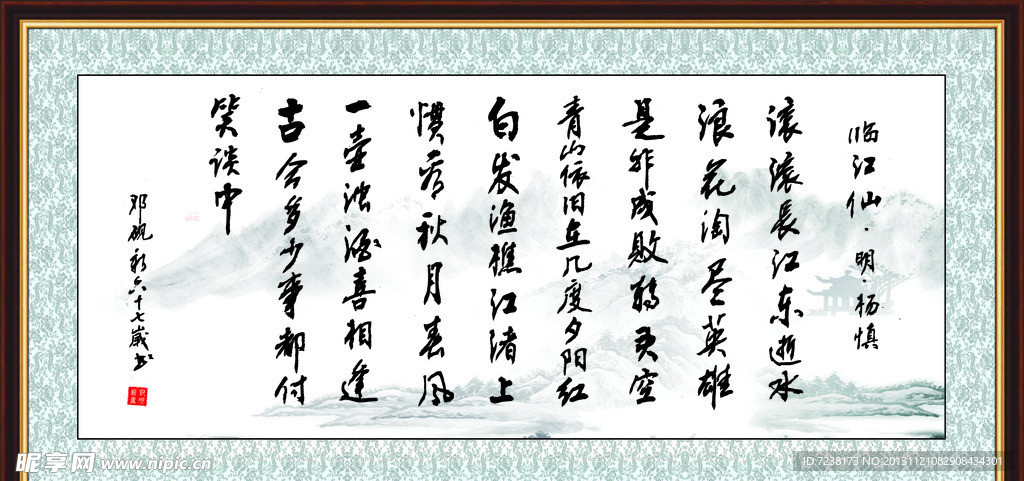 临江仙·明·杨慎
滚滚长江东逝水
浪花淘尽英雄
是非成败转头空
青山依旧在几度夕阳红
白发渔樵江渚上
惯看秋月春风
一壶浊酒喜相逢
古今多少事都付
笑谈中
邓砚新六十七岁书
昵享网 www.nipic.cn
ID:7238173 NO.20131121082908434301